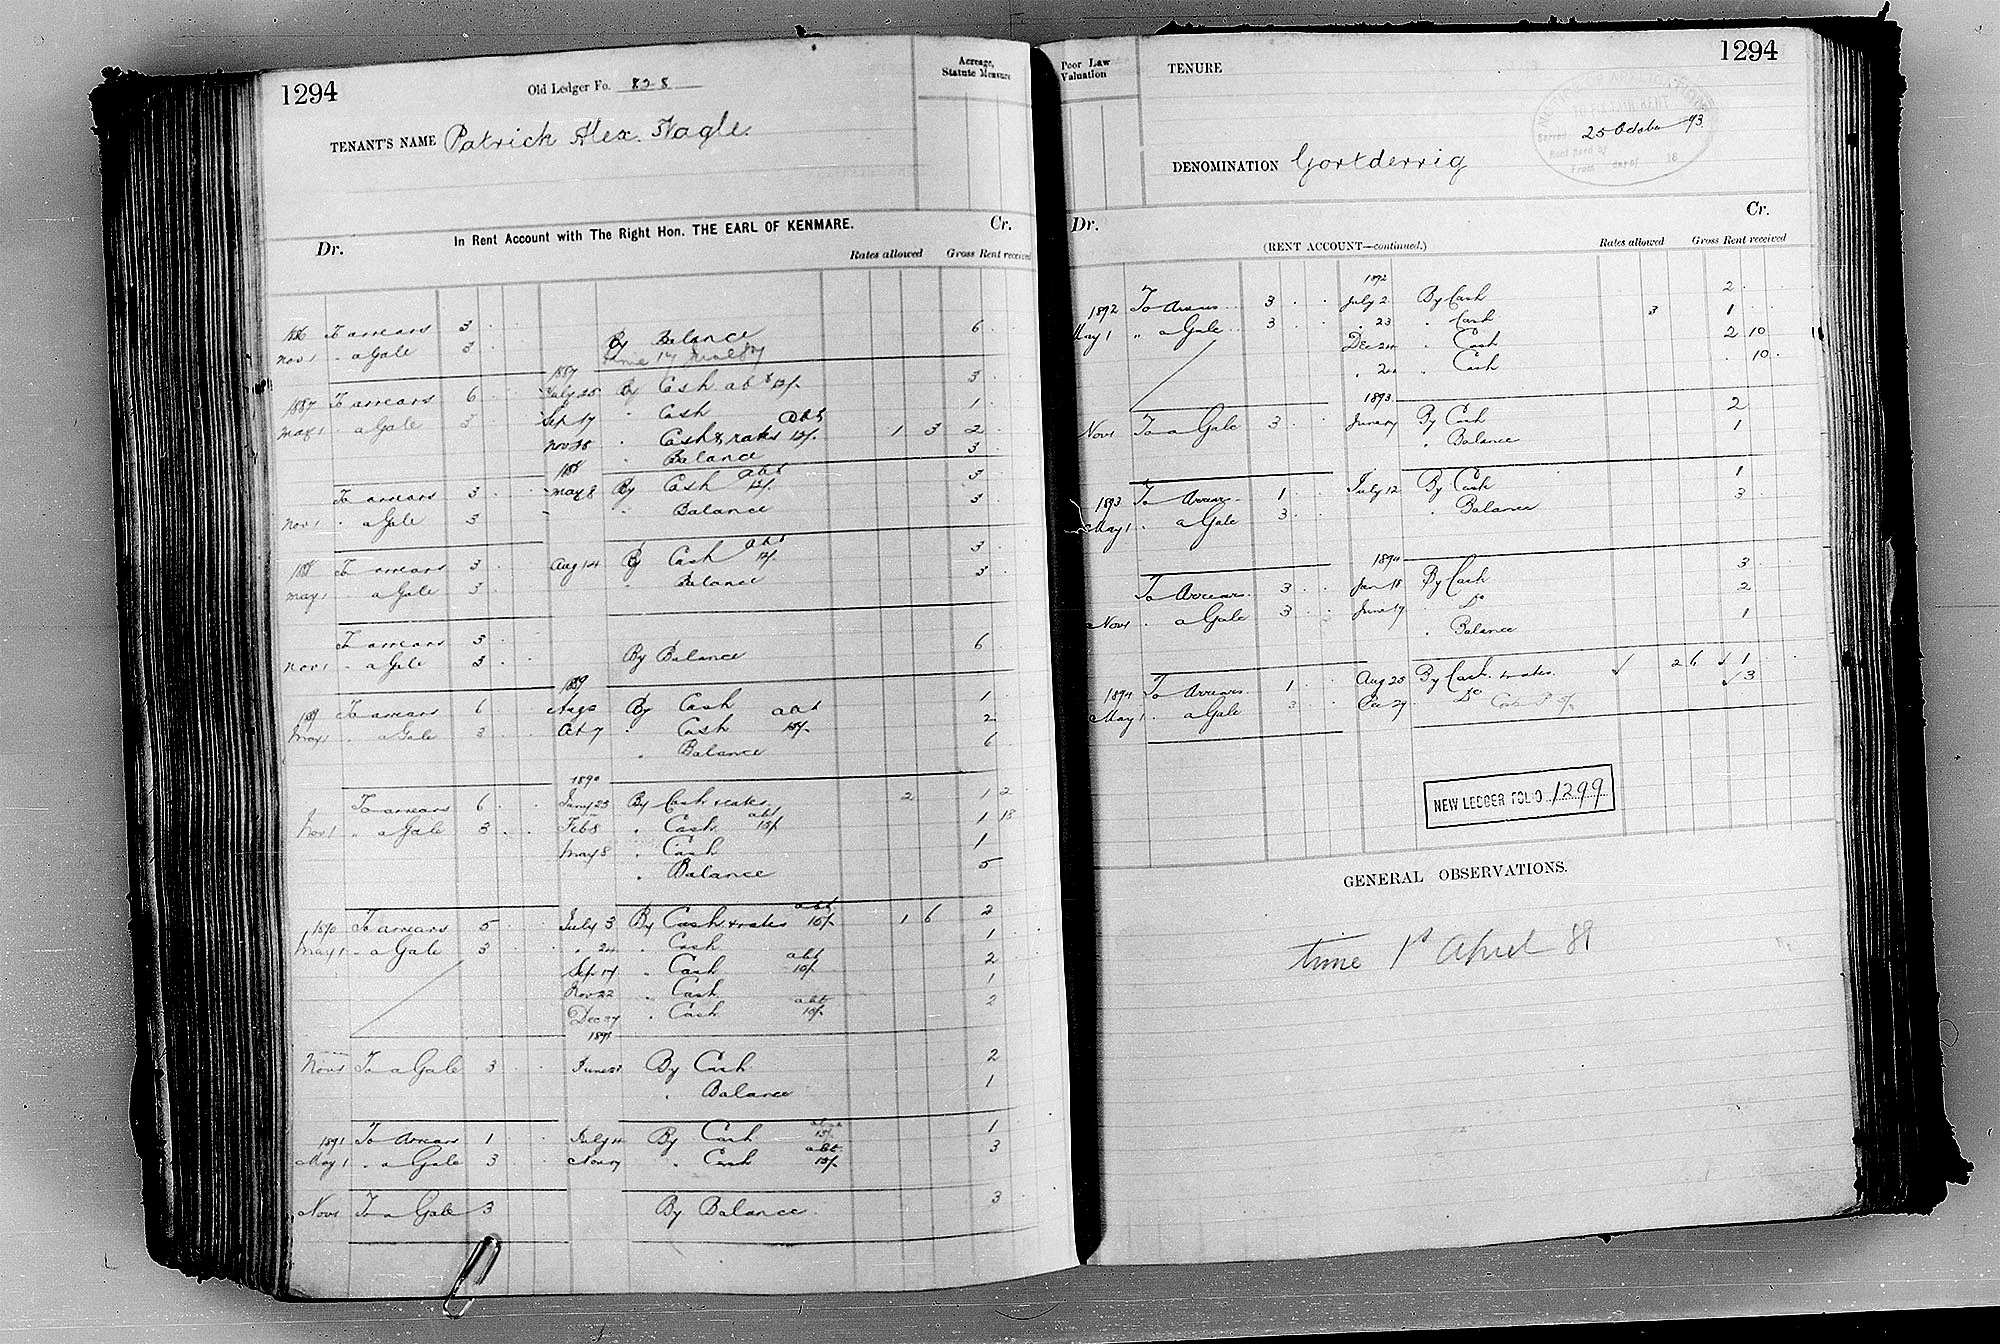 1294
Old Ledger Fo. 828
Acreage, Statute Measure
TENANT'S NAME Patrick Alex. Nagle.
In Rent Account with The Right Hon. THE EARL OF KENMARE.
Dr. Cr.
Rates allowed Gross Rent received
1886 To arrears 3
Nov 1 " a Gale 3 By Balance 6
time 17 June 87
1887
1887 To arrears 6 July 25 By Cash abt 12/- 3
May 1 " a Gale 3 Sep 17 " Cash 1
Nov 28 " Cash & rates abt 12/- 1 3 2
" Balance 3
1888
To arrears 3 May 8 By Cash abt 12/- 3
Nov 1 " a Gale 3 " Balance 3
1888 To arrears 3 Aug 14 By Cash abt 12/- 3
May 1 " a Gale 3 " Balance 3
To arrears 3
Nov 1 " a Gale 3 By Balance 6
1889
1889 To arrears 6 Aug 2 By Cash 1
May 1 " a Gale 3 Oct 7 " Cash abt 15/- 2
" Balance 6
1890
To arrears 6 Jany 23 By Cash & rates 2 1 2
Nov 1 " a Gale 3 Feb 8 " Cash abt 15/- 1 18
May 8 " Cash 1
" Balance 5
1890 To arrears 5 July 3 By Cash & rates abt 10/- 1 6 2
May 1 " a Gale 3 " 24 " Cash 1
Sep 17 " Cash abt 10/- 2
Nov 22 " Cash 1
Dec 27 " Cash abt 10/- 2
1891
Nov 1 To a Gale 3 June By Cash 2
" Balance 1
1891 To Arrears 1 July By Cash 15/- 1
May 1 " a Gale 3 " Cash abt 15/- 3
Nov 1 To a Gale 3 By Balance 3
Poor Law Valuation
TENURE
1294
25 October 93
DENOMINATION Gortderrig
Dr. Cr.
(RENT ACCOUNT—continued.)
Rates allowed Gross Rent received
1892
1892 To Arrears 3 July 2 By Cash 2
May 1 " a Gale 3 " 23 " Cash 3 1
Dec 24 " Cash 2 10
" 24 " Cash 10
1893
Nov 1 To a Gale 3 June 17 By Cash 2
" Balance 1
1893 To Arrears 1 July 12 By Cash 1
May 1 " a Gale 3 " Balance 3
1894
To Arrears 3 Jan 18 By Cash 3
Nov 1 " a Gale 3 June 17 " Do 2
" Balance 1
1894 To Arrears 1 Aug 25 By Cash & rates ✓ 2 6 ✓ 1
May 1 " a Gale 3 Dec 29 " Do ✓ 3
NEW LEDGER FOLIO 1299
GENERAL OBSERVATIONS.
time 1st April 89